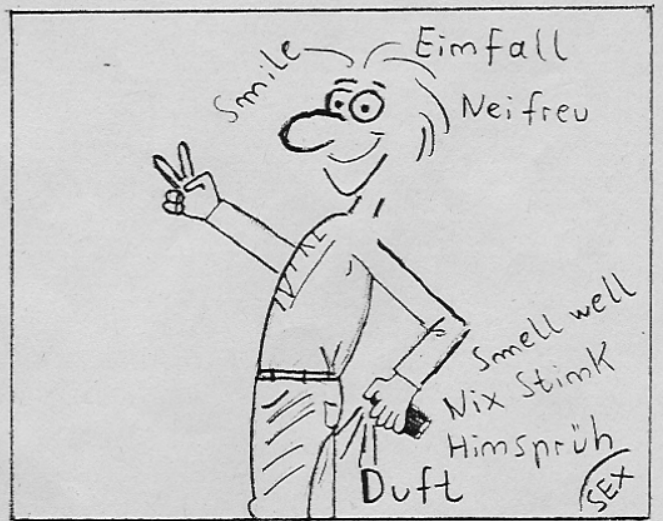 Smile
Eimfall
Neifreu
Smell well
Nix StimK
Himsprüh
Duft
SEX